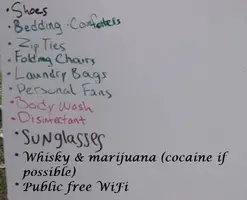 • Shoes
• Bedding-Comforters
• Zip Ties
• Folding Chairs
• Laundry Bags
• Personal Fans
• Body Wash
• Disinfectant
• SUNglasses
• Whisky & marijuana (cocaine if
possible)
• Public free WiFi